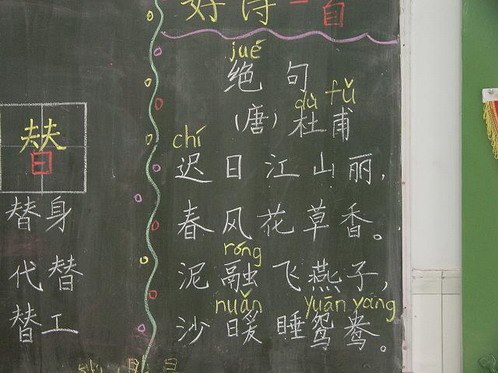 替
替身
代替
替工
好诗一首
jué
绝句
dù fǔ
(唐)杜甫
chí
迟日江山丽,
春风花草香。
róng
泥融飞燕子,
nuǎn yuān yāng
沙暖睡鸳鸯。